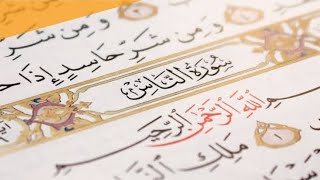 وَمِن شَرِّ
وَمِن شَرِّ حَاسِدٍ إِذَا
سُورَةُ النَّاسِ
اللَّهِ الرَّحْمَٰنِ الرَّحِيمِ
مَلِكِ